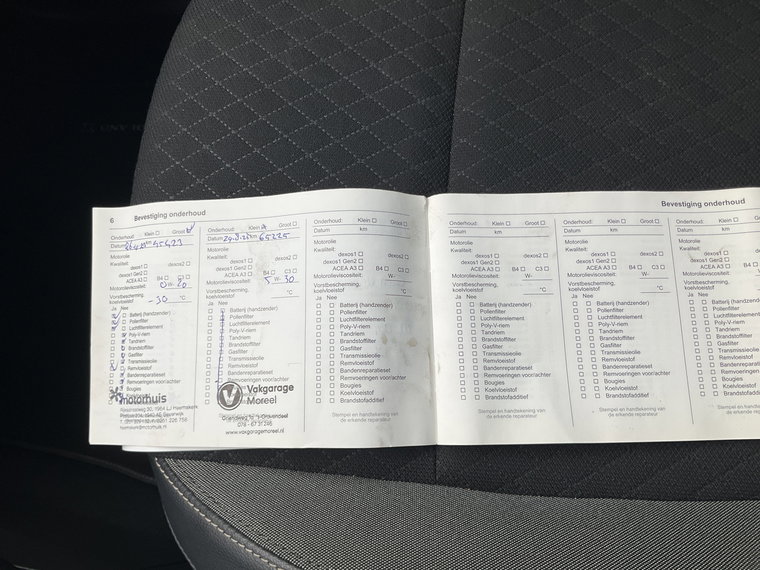 6 Bevestiging onderhoud
Onderhoud: Klein Groot
Datum km 45423
Motorolie
Kwaliteit:
dexos1 dexos2
dexos1 Gen2
ACEA A3 B4 C3
Motorolieviscositeit: 0 W- 20
Vorstbescherming,
koelvloeistof 30 °C
Ja Nee
Batterij (handzender)
Pollenfilter
Luchtfilterelement
Poly-V-riem
Tandriem
Brandstoffilter
Gasfilter
Transmissieolie
Remvloeistof
Bandenreparatieset
Remvoeringen voor/achter
Bougies
motorhuis
Onderhoud: Klein Groot
Datum km 65225
Motorolie
Kwaliteit:
dexos1 dexos2
dexos1 Gen2
ACEA A3 B4 C3
Motorolieviscositeit: 5 W- 30
Vorstbescherming,
koelvloeistof °C
Ja Nee
Batterij (handzender)
Pollenfilter
Luchtfilterelement
Poly-V-riem
Tandriem
Brandstoffilter
Gasfilter
Transmissieolie
Remvloeistof
Bandenreparatieset
Remvoeringen voor/achter
V Vakgarage
Moreel
078 - 6731246
www.vakgaragemoreel.nl
Onderhoud: Klein Groot
Datum km
Motorolie
Kwaliteit:
dexos1 dexos2
dexos1 Gen2
ACEA A3 B4 C3
Motorolieviscositeit: W-
Vorstbescherming,
koelvloeistof °C
Ja Nee
Batterij (handzender)
Pollenfilter
Luchtfilterelement
Poly-V-riem
Tandriem
Brandstoffilter
Gasfilter
Transmissieolie
Remvloeistof
Bandenreparatieset
Remvoeringen voor/achter
Bougies
Koelvloeistof
Brandstofadditief
Stempel en handtekening van
de erkende reparateur
Bevestiging onderhoud
Onderhoud: Klein Groot
Datum km
Motorolie
Kwaliteit:
dexos1 dexos2
dexos1 Gen2
ACEA A3 B4 C3
Motorolieviscositeit: W-
Vorstbescherming,
koelvloeistof °C
Ja Nee
Batterij (handzender)
Pollenfilter
Luchtfilterelement
Poly-V-riem
Tandriem
Brandstoffilter
Gasfilter
Transmissieolie
Remvloeistof
Bandenreparatieset
Remvoeringen voor/achter
Bougies
Koelvloeistof
Brandstofadditief
Stempel en handtekening van
de erkende reparateur
Onderhoud: Klein Groot
Datum km
Motorolie
Kwaliteit:
dexos1 dexos2
dexos1 Gen2
ACEA A3 B4 C3
Motorolieviscositeit: W-
Vorstbescherming,
koelvloeistof °C
Ja Nee
Batterij (handzender)
Pollenfilter
Luchtfilterelement
Poly-V-riem
Tandriem
Brandstoffilter
Gasfilter
Transmissieolie
Remvloeistof
Bandenreparatieset
Remvoeringen voor/achter
Bougies
Koelvloeistof
Brandstofadditief
Stempel en handtekening van
de erkende reparateur
Onderhoud: Klein
Datum km
Motorolie
Kwaliteit:
dexos1
dexos1 Gen2
ACEA A3
Motorolieviscositeit:
Vorstbescherming,
koelvloeistof
Ja Nee
Pollenfilter
Poly-V-riem
Tandriem
Brandstoffilter
Gasfilter
Bougies
Koelvloeistof